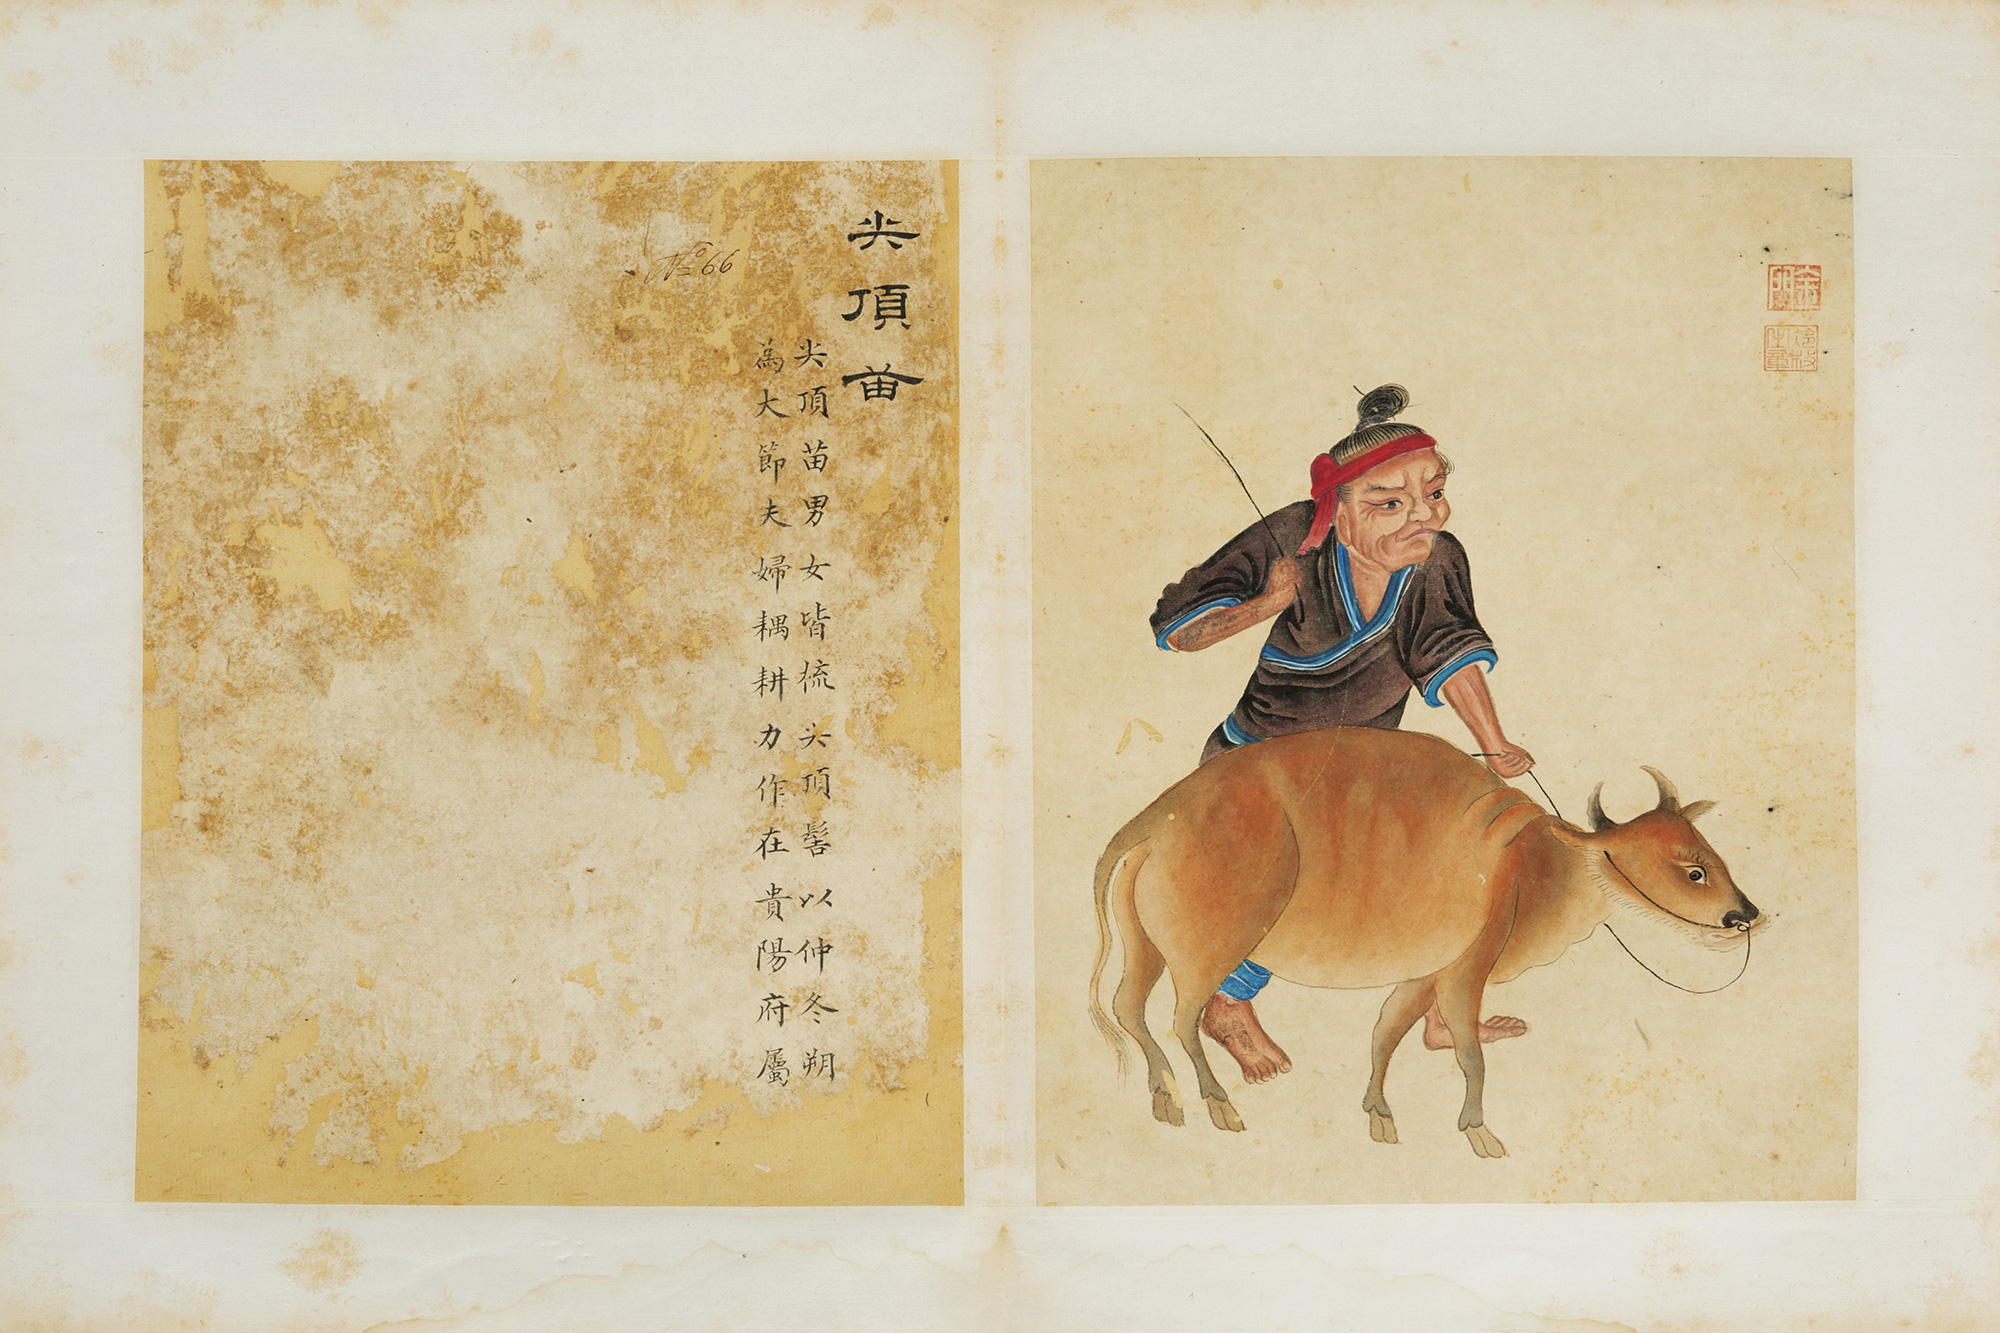 尖頂苗
尖頂苗男女皆梳尖頂髻以仲冬朔
為大節夫婦耦耕力作在貴陽府屬
№ 66